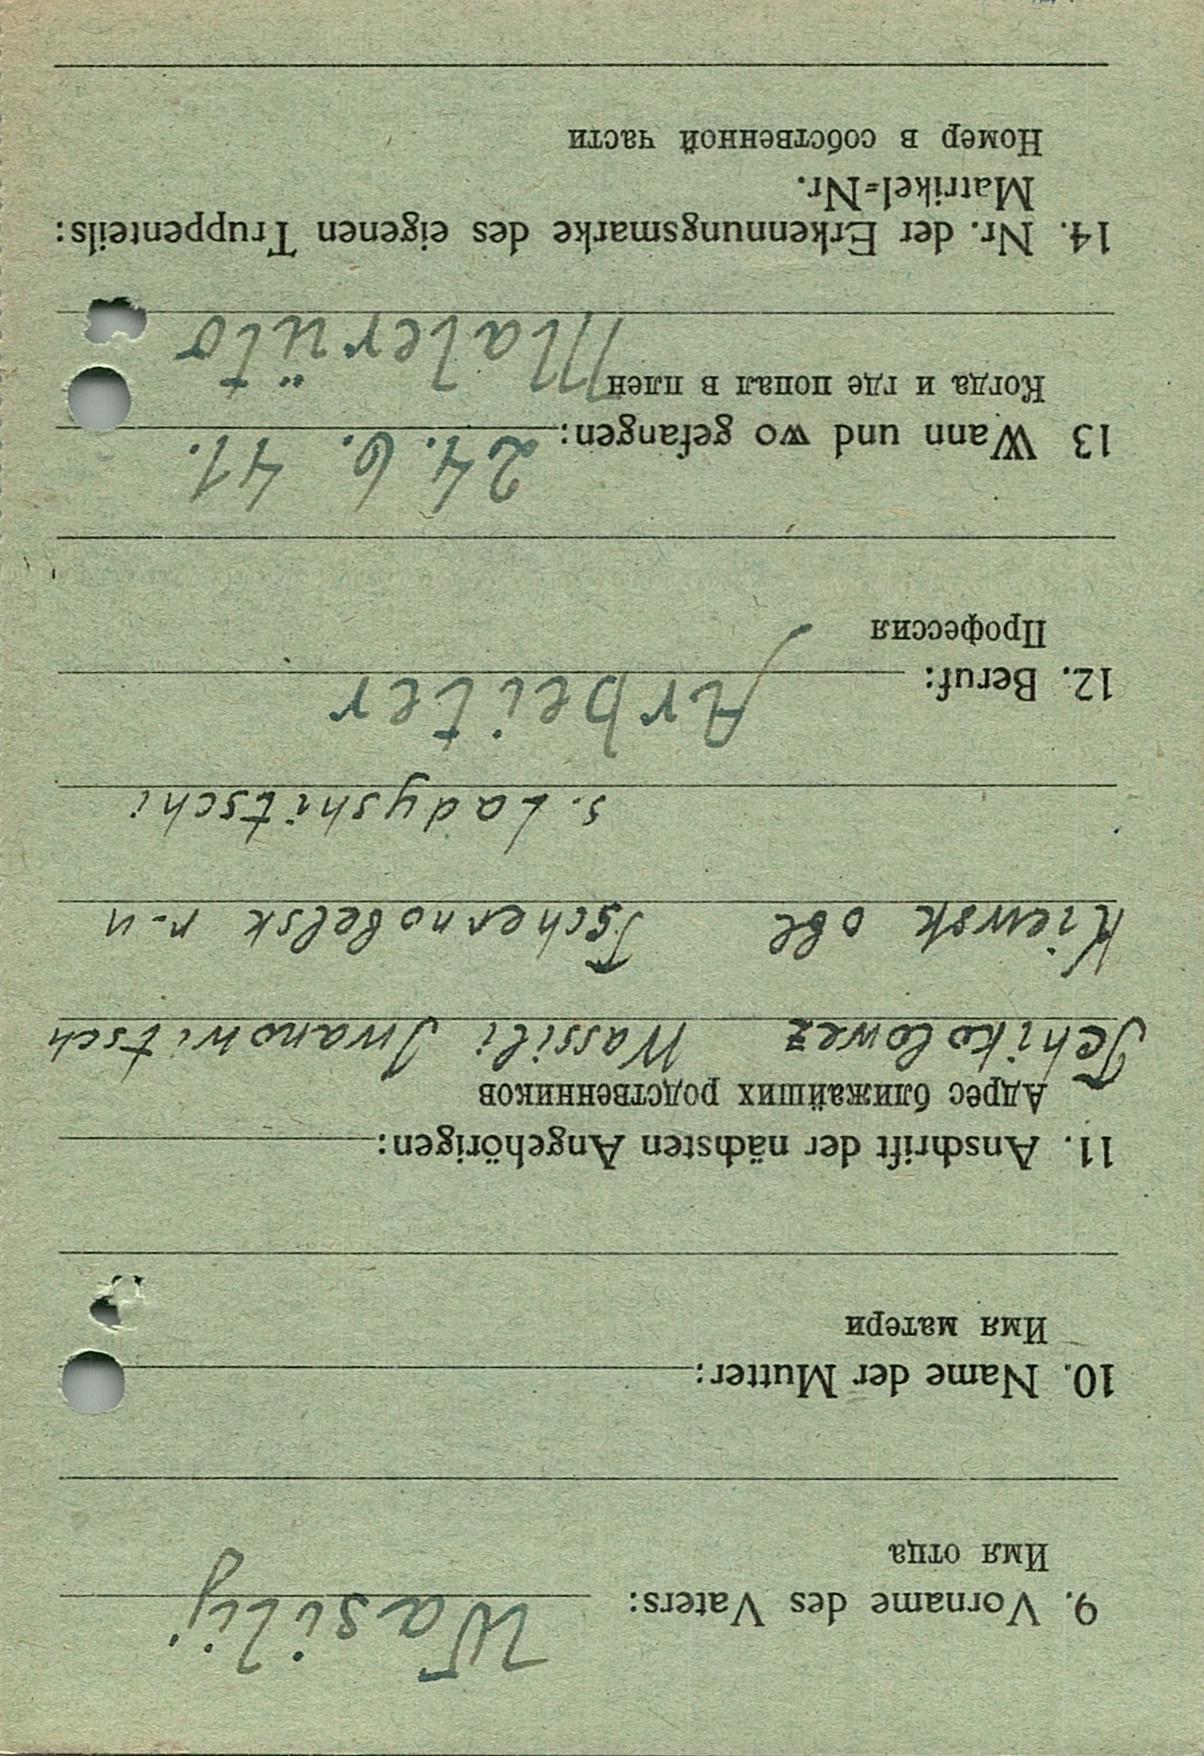 9. Vorname des Vaters: Wasilij
Имя отца
10. Name der Mutter:
Имя матери
11. Anschrift der nächsten Angehörigen:
Адрес ближайших родственников
Wassili Iwanowitsch
Kiewsk obl Tschernobelsk r-n
s. Ladyshitschi
12. Beruf: Arbeiter
Профессия
13 Wann und wo gefangen: 24. 6. 41.
Когда и где попал в плен
14. Nr. der Erkennungsmarke des eigenen Truppenteils:
Matrikel=Nr.
Номер в собственной части